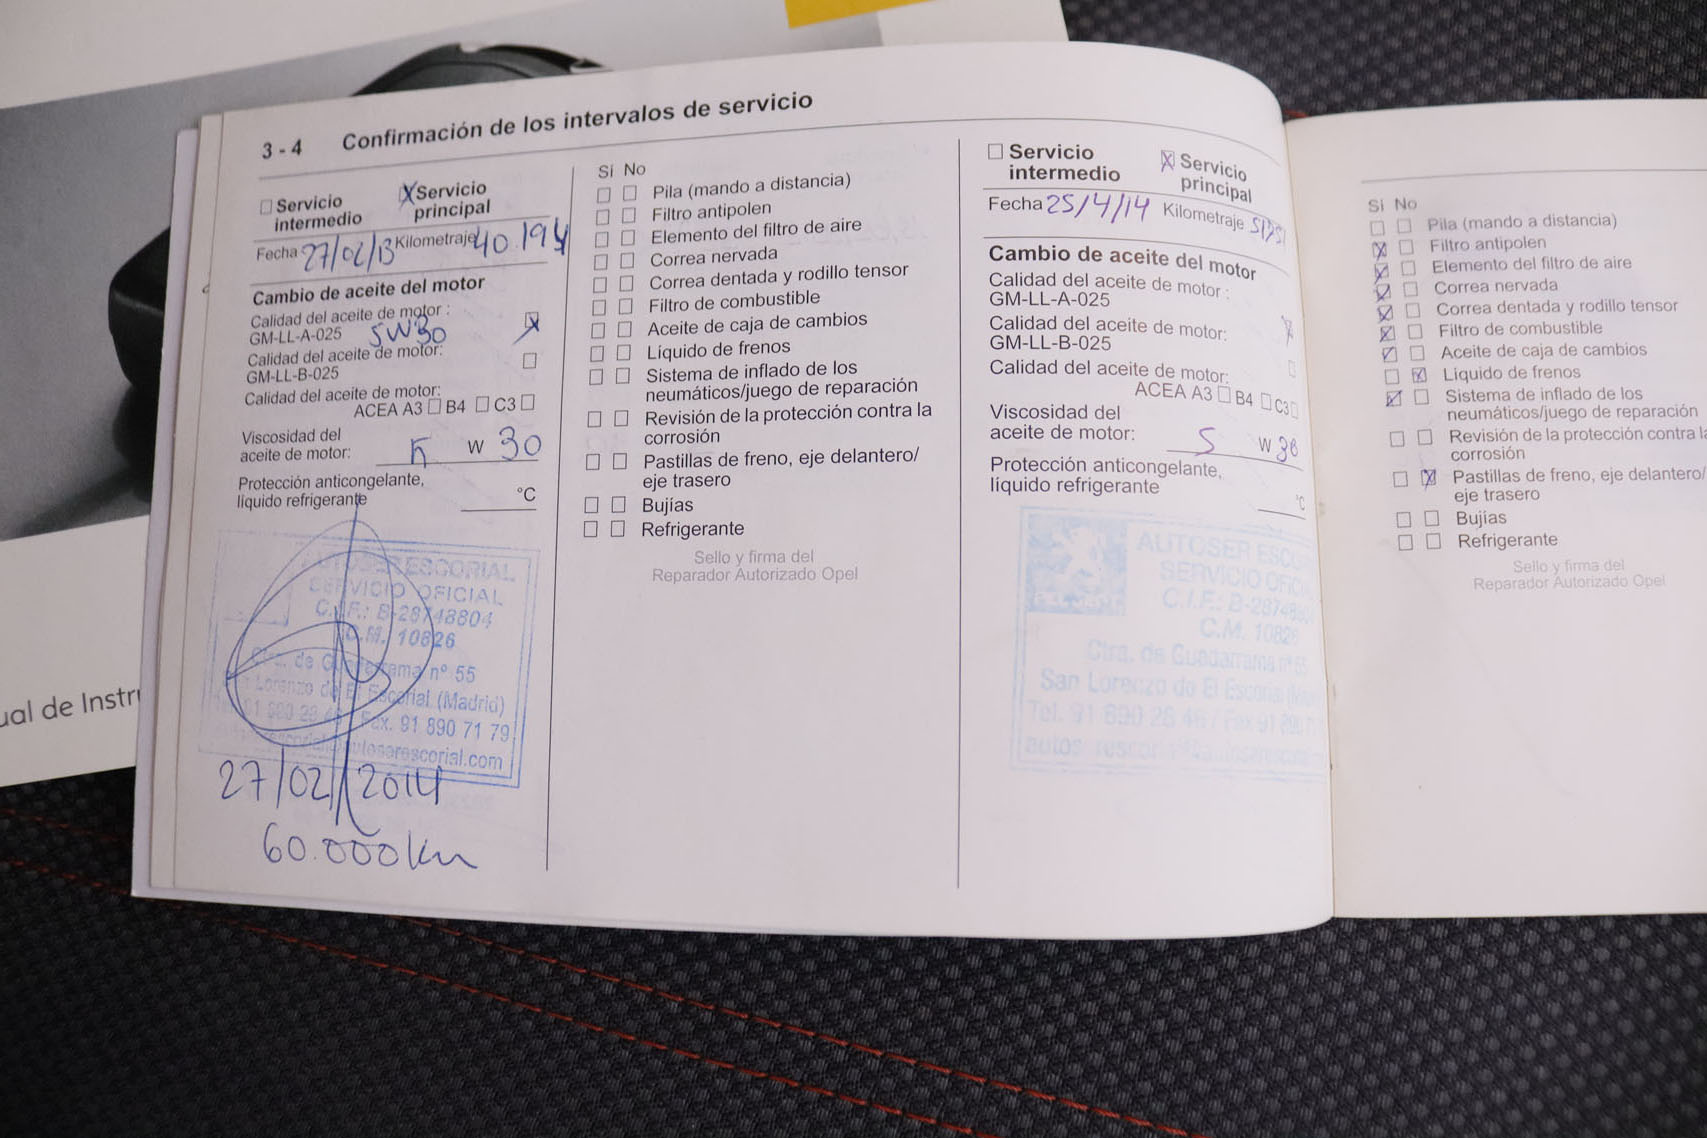 3 - 4 Confirmación de los intervalos de servicio
Servicio intermedio
X Servicio principal
Fecha 27/02/13 Kilometraje 40.194
Cambio de aceite del motor
Calidad del aceite de motor :
GM-LL-A-025 5W30 X
Calidad del aceite de motor:
GM-LL-B-025
Calidad del aceite de motor:
ACEA A3 B4 C3
Viscosidad del
aceite de motor: 5 W 30
Protección anticongelante,
líquido refrigerante °C
AUTOSER ESCORIAL
SERVICIO OFICIAL
C.I.F.: B-28748804
C.M. 10826
Ctra. de Guadarrama nº 55
San Lorenzo de El Escorial (Madrid)
Tel. 91 890 28 46 / Fax. 91 890 71 79
autoserescorial.com
27/02/2014
60.000 km
Sí No
Pila (mando a distancia)
Filtro antipolen
Elemento del filtro de aire
Correa nervada
Correa dentada y rodillo tensor
Filtro de combustible
Aceite de caja de cambios
Líquido de frenos
Sistema de inflado de los
neumáticos/juego de reparación
Revisión de la protección contra la
corrosión
Pastillas de freno, eje delantero/
eje trasero
Bujías
Refrigerante
Sello y firma del
Reparador Autorizado Opel
Servicio intermedio
X Servicio principal
Fecha 25/4/14 Kilometraje
Cambio de aceite del motor
Calidad del aceite de motor :
GM-LL-A-025
Calidad del aceite de motor:
GM-LL-B-025
Calidad del aceite de motor:
ACEA A3 B4 C3
Viscosidad del
aceite de motor: 5 W 30
Protección anticongelante,
líquido refrigerante °C
AUTOSER ESCO
SERVICIO OFICI
C.I.F.: B-28748
C.M. 10826
Ctra. de Guadarrama nº 55
San Lorenzo de El Escorial
Tel. 91 890 28 46 / Fax 91 890
Sí No
Pila (mando a distancia)
Filtro antipolen
Elemento del filtro de aire
Correa nervada
Correa dentada y rodillo tensor
Filtro de combustible
Aceite de caja de cambios
Líquido de frenos
Sistema de inflado de los
neumáticos/juego de reparación
Revisión de la protección contra la
corrosión
Pastillas de freno, eje delantero/
eje trasero
Bujías
Refrigerante
Sello y firma del
Reparador Autorizado Opel
ual de Instru